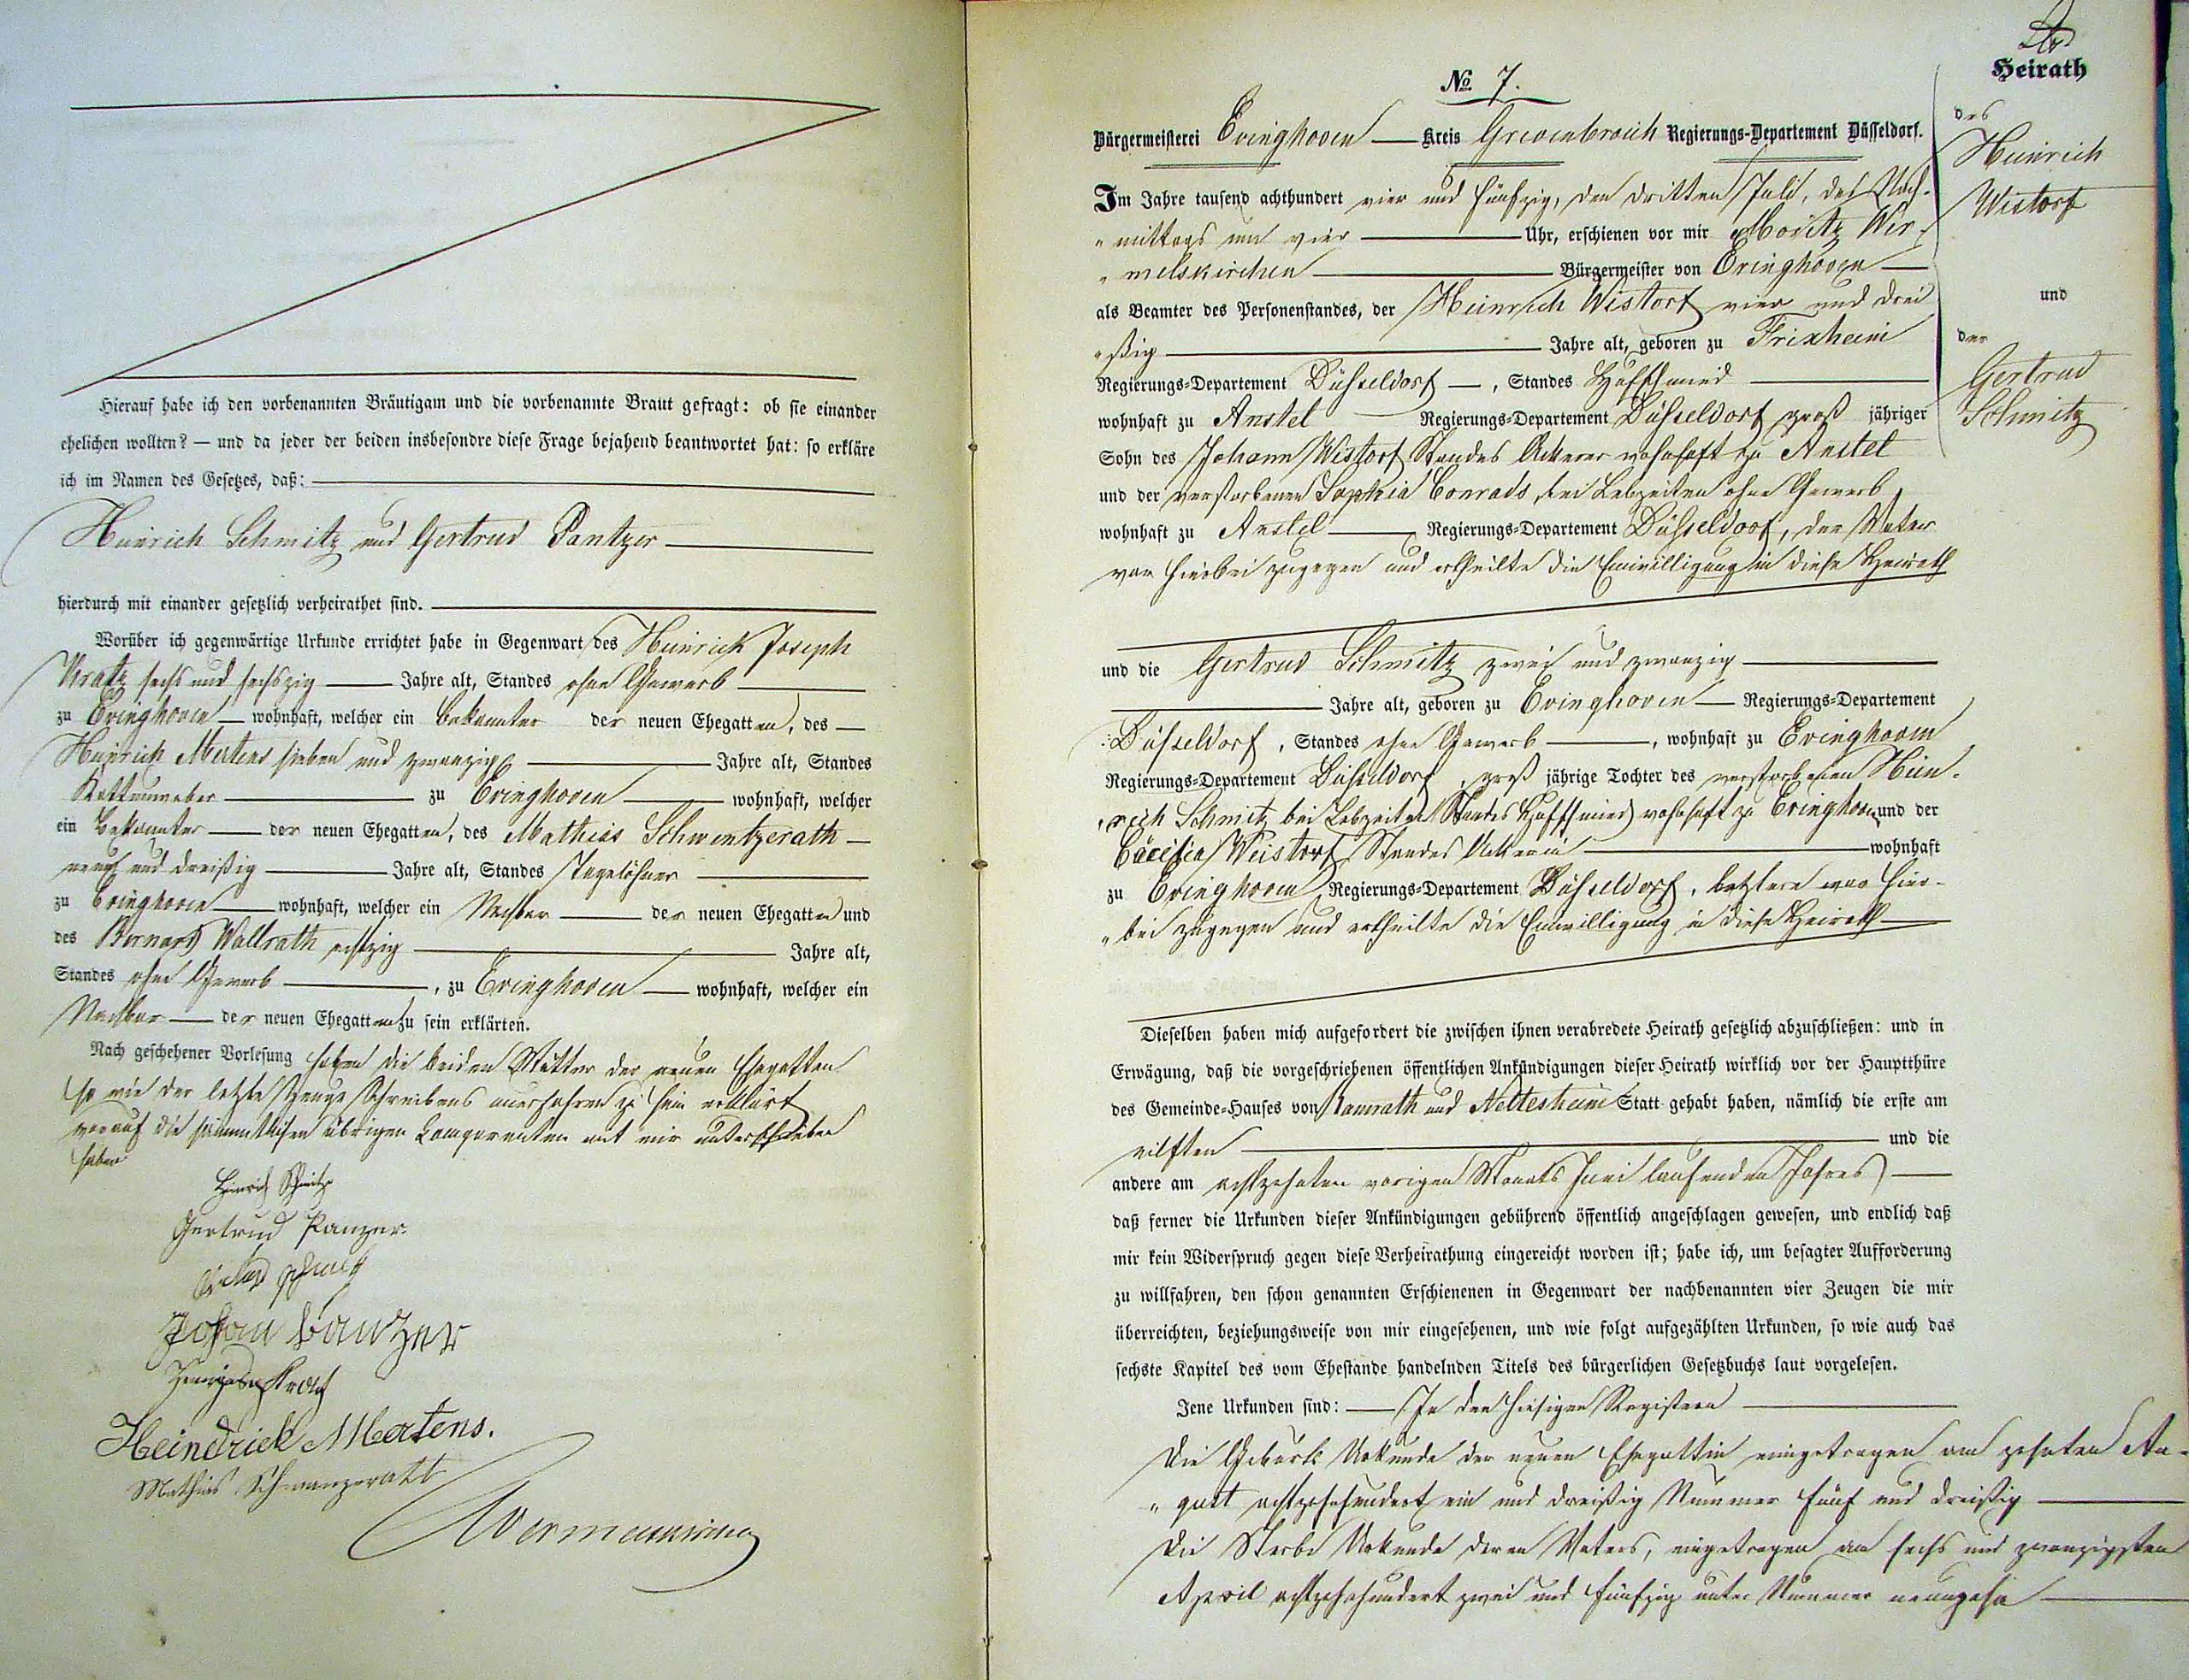 Hierauf habe ich den vorbenannten Bräutigam und die vorbenannte Braut gefragt: ob sie einander
ehelichen wollten? — und da jeder der beiden insbesondre diese Frage bejahend beantwortet hat: so erkläre
ich im Namen des Gesetzes, daß:
Heinrich Schmitz und Gertrud Pantzer
hierdurch mit einander gesetzlich verheirathet sind.
Worüber ich gegenwärtige Urkunde errichtet habe in Gegenwart des Heinrich Joseph
Kratz sechs und sechszig Jahre alt, Standes ohne Gewerb
zu Evinghoven wohnhaft, welcher ein Bekannter der neuen Ehegatten, des
Heinrich Mertens sieben und zwanzig Jahre alt, Standes
zu Evinghoven wohnhaft, welcher
ein Bekannter der neuen Ehegatten, des Mathias Schwentzerath
neun und dreißig Jahre alt, Standes Tagelöhner
zu Evinghoven wohnhaft, welcher ein Nachbar der neuen Ehegatten und
des Bernard Wallrath achtzig Jahre alt,
Standes ohne Gewerb, zu Evinghoven wohnhaft, welcher ein
Nachbar der neuen Ehegatten zu sein erklärten.
Nach geschehener Vorlesung haben die beiden Mütter der neuen Ehegatten
so wie der letzte Zeuge Schreibens unerfahren zu sein erklärt
worauf die sämmtlichen übrigen Comparenten mit mir unterschrieben
haben
Heinrich Schmitz
Gertrud Panzer.
Johan Banzer
Heindrick Mertens.
Mathias Schwanzeratt
№ 7.
Bürgermeisterei Evinghoven Kreis Grevenbroich Regierungs-Departement Düsseldorf.
Im Jahre tausend achthundert vier und fünfzig, den dritten Juli, des Nach-
mittags um vier Uhr, erschienen vor mir Moritz Wer-
melskirchen Bürgermeister von Evinghoven
als Beamter des Personenstandes, der Heinrich Wistorf vier und drei
ßig Jahre alt, geboren zu Frixheim
Regierungs-Departement Düsseldorf, Standes Hufschmied
wohnhaft zu Anstel Regierungs-Departement Düsseldorf groß jähriger
Sohn des Johann Wistorf Standes Ackerer wohnhaft zu Anstel
und der verstorbenen Sophia Conrads, bei Lebzeiten ohne Gewerb
wohnhaft zu Anstel Regierungs-Departement Düsseldorf, der Vater
war hierbei zugegen und ertheilte die Einwilligung in diese Heirath
und die Gertrud Schmitz zwei und zwanzig
Jahre alt, geboren zu Evinghoven Regierungs-Departement
Düsseldorf, Standes ohne Gewerb, wohnhaft zu Evinghoven
Regierungs-Departement Düsseldorf, groß jährige Tochter des verstorbenen Hein-
rich Schmitz bei Lebzeiten Standes Hufschmied wohnhaft zu Evinghoven und der
Cäcilia Weistorf Standes Ackerin wohnhaft
zu Evinghoven Regierungs-Departement Düsseldorf, letztere war hier-
bei zugegen und ertheilte die Einwilligung in diese Heirath
Dieselben haben mich aufgefordert die zwischen ihnen verabredete Heirath gesetzlich abzuschließen: und in
Erwägung, daß die vorgeschriebenen öffentlichen Ankündigungen dieser Heirath wirklich vor der Hauptthüre
des Gemeinde-Hauses von Ramrath und Nettesheim Statt gehabt haben, nämlich die erste am
eilften und die
andere am achtzehnten vorigen Monats Juni laufenden Jahres
daß ferner die Urkunden dieser Ankündigungen gebührend öffentlich angeschlagen gewesen, und endlich daß
mir kein Widerspruch gegen diese Verheirathung eingereicht worden ist; habe ich, um besagter Aufforderung
zu willfahren, den schon genannten Erschienenen in Gegenwart der nachbenannten vier Zeugen die mir
überreichten, beziehungsweise von mir eingesehenen, und wie folgt aufgezählten Urkunden, so wie auch das
sechste Kapitel des vom Ehestande handelnden Titels des bürgerlichen Gesetzbuchs laut vorgelesen.
Jene Urkunden sind: In den hiesigen Registern
Die Geburts Urkunde der neuen Ehegattin eingetragen am zehnten Au-
gust achtzehnhundert ein und dreißig Nummer fünf und dreißig
Die Sterbe Urkunde deren Vaters, eingetragen am sechs und zwanzigsten
April achtzehnhundert zwei und fünfzig unter Nummer neunzehn
Heirath
des
Heinrich
Wistorf
und
der
Gertrud
Schmitz